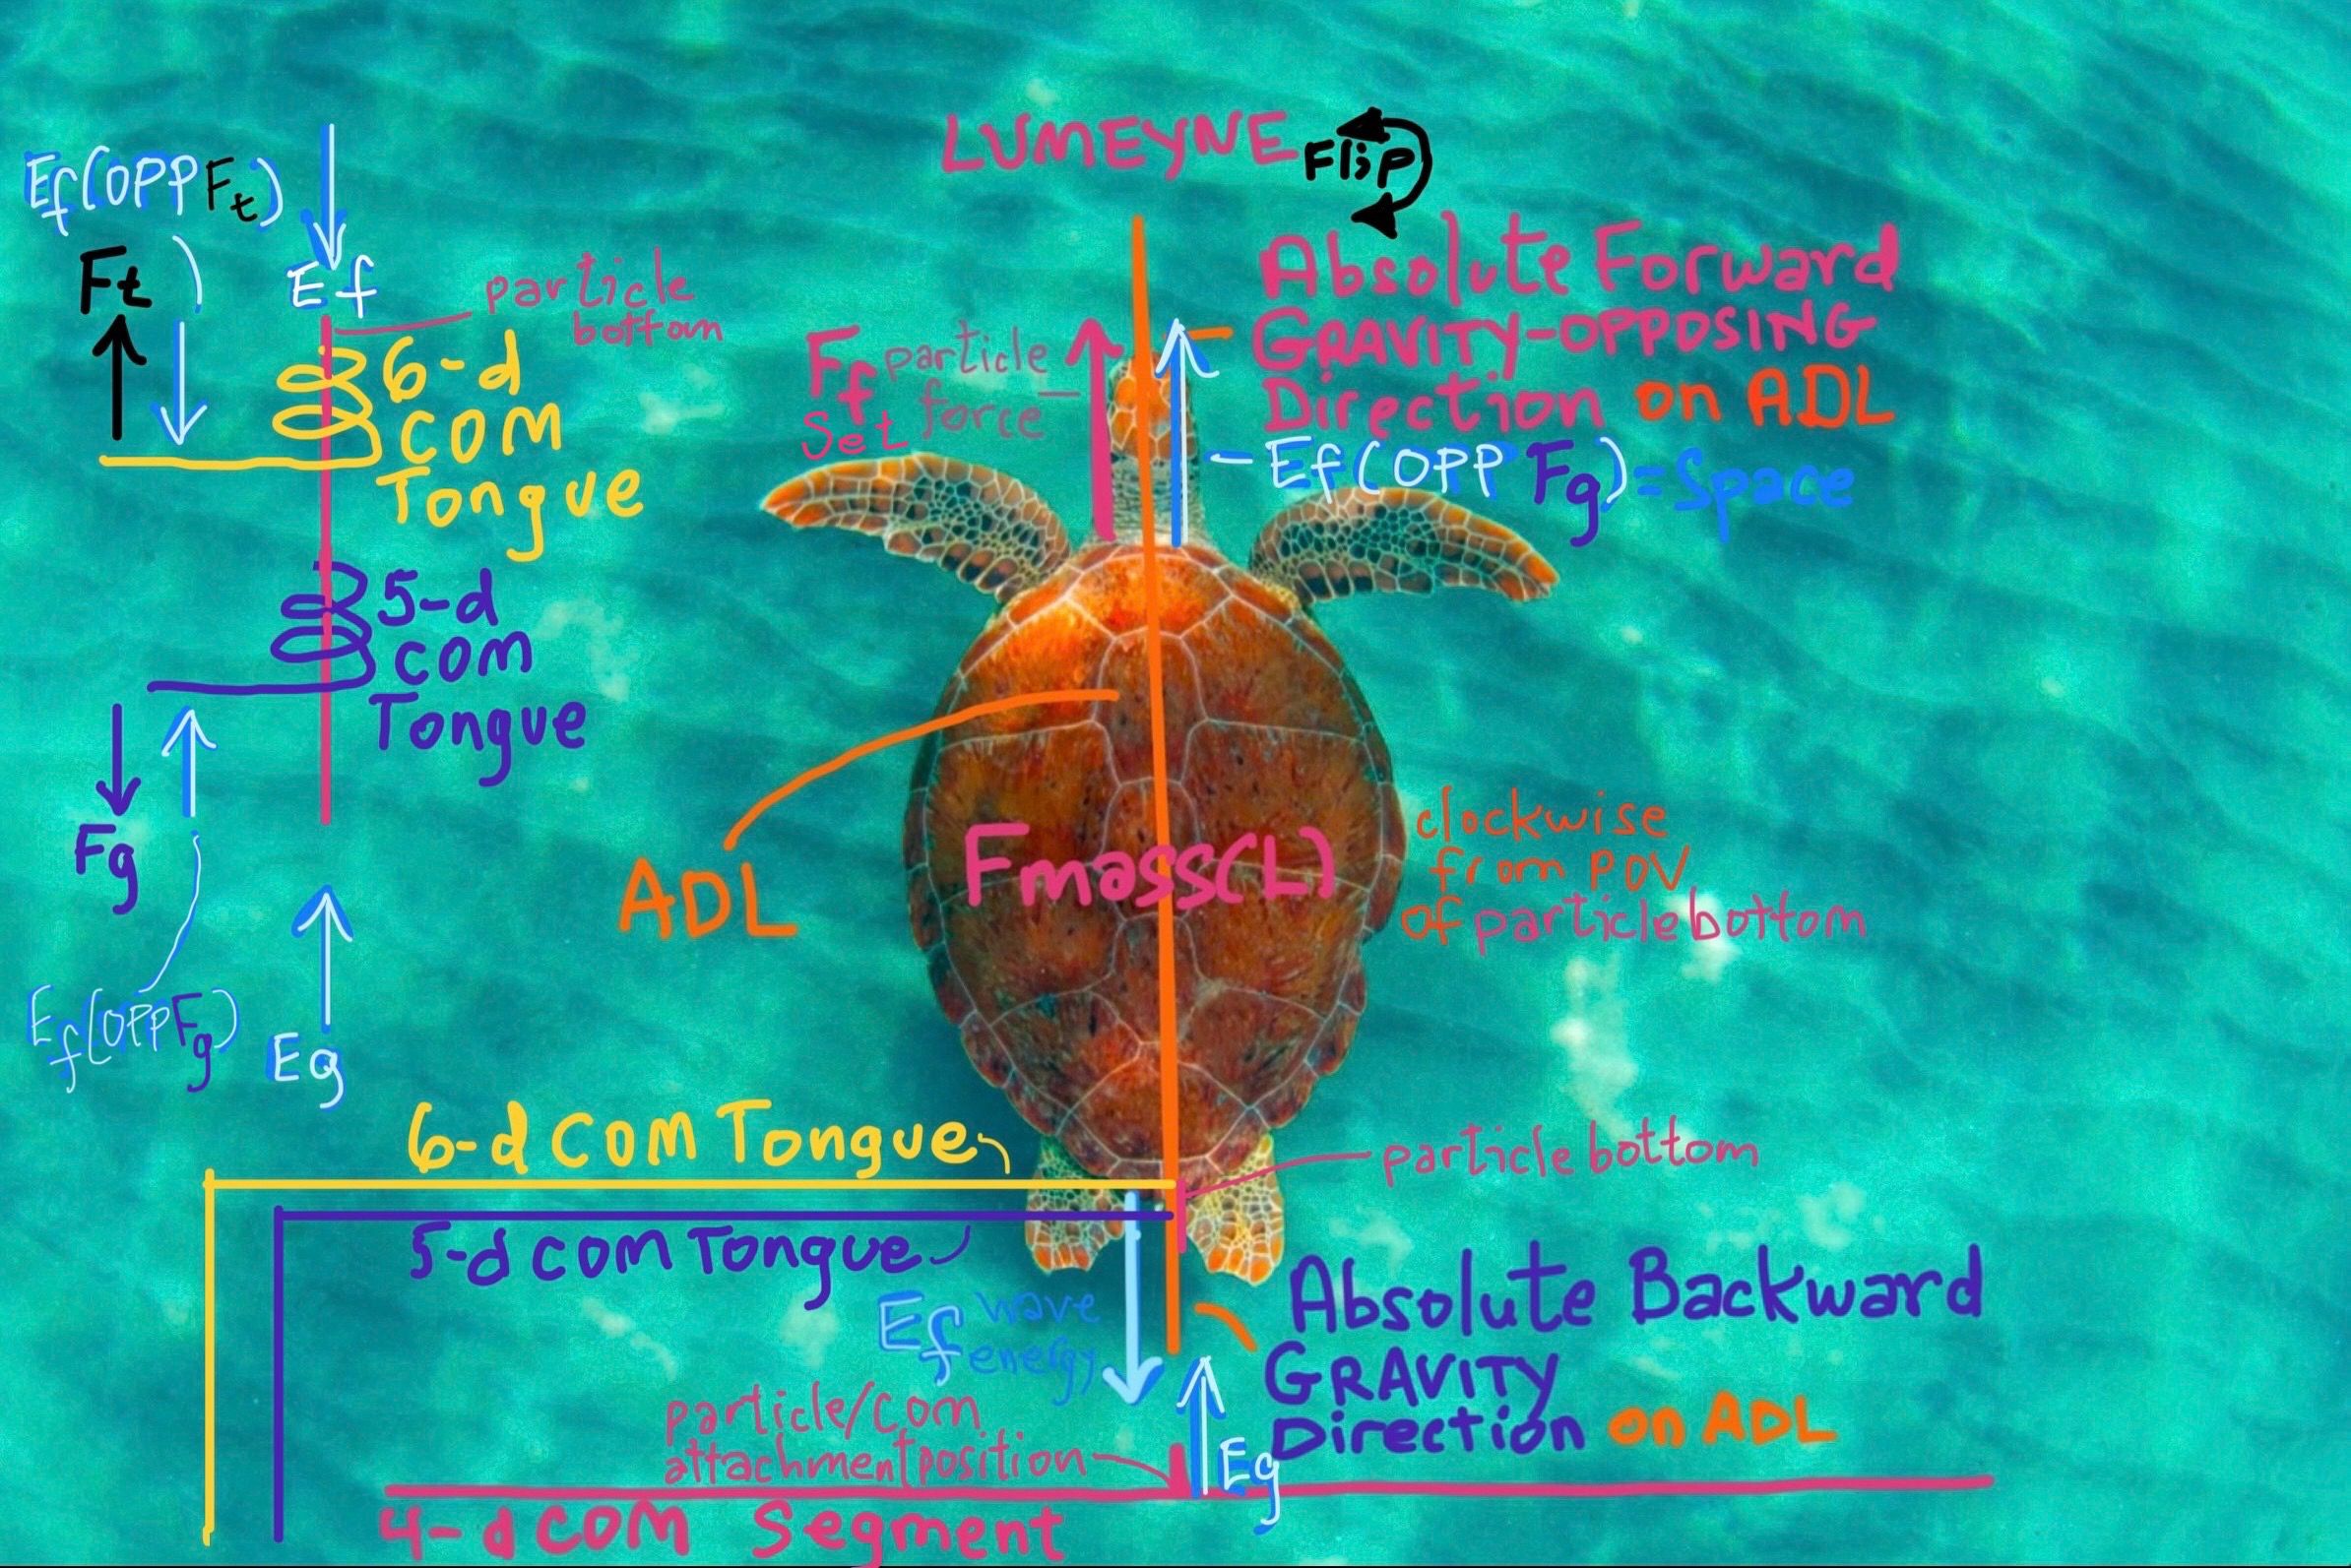 LUMEYNE Flip
Ef(OPP Ft)
Ft
Ef
particle
bottom
6-d
COM
Tongue
5-d
COM
Tongue
Fg
Ef(OPP Fg)
Eg
Ff particle
Set force
Absolute Forward
GRAVITY-OPPOSING
Direction on ADL
Ef(OPP Fg)=Space
ADL
Fmass(L)
clockwise
from POV
of particle bottom
6-d COM Tongue
5-d COM Tongue
particle bottom
Ef wave
energy
Absolute Backward
GRAVITY
Direction on ADL
particle/COM
attachment position
Eg
4-d COM Segment